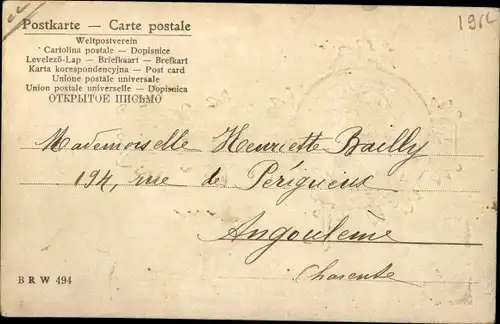 Postkarte — Carte postale
Weltpostverein
Cartolina postale — Dopisnice
Levelező-Lap — Briefkaart — Brefkort
Karta korespondencyjna — Post card
Unione postale universale
Union postale universelle — Dopisnica
ОТКРЫТОЕ ПИСЬМО
Mademoiselle Henriette Bailly
194, rue de Périgueux
Angoulème
Charente
B R W 494